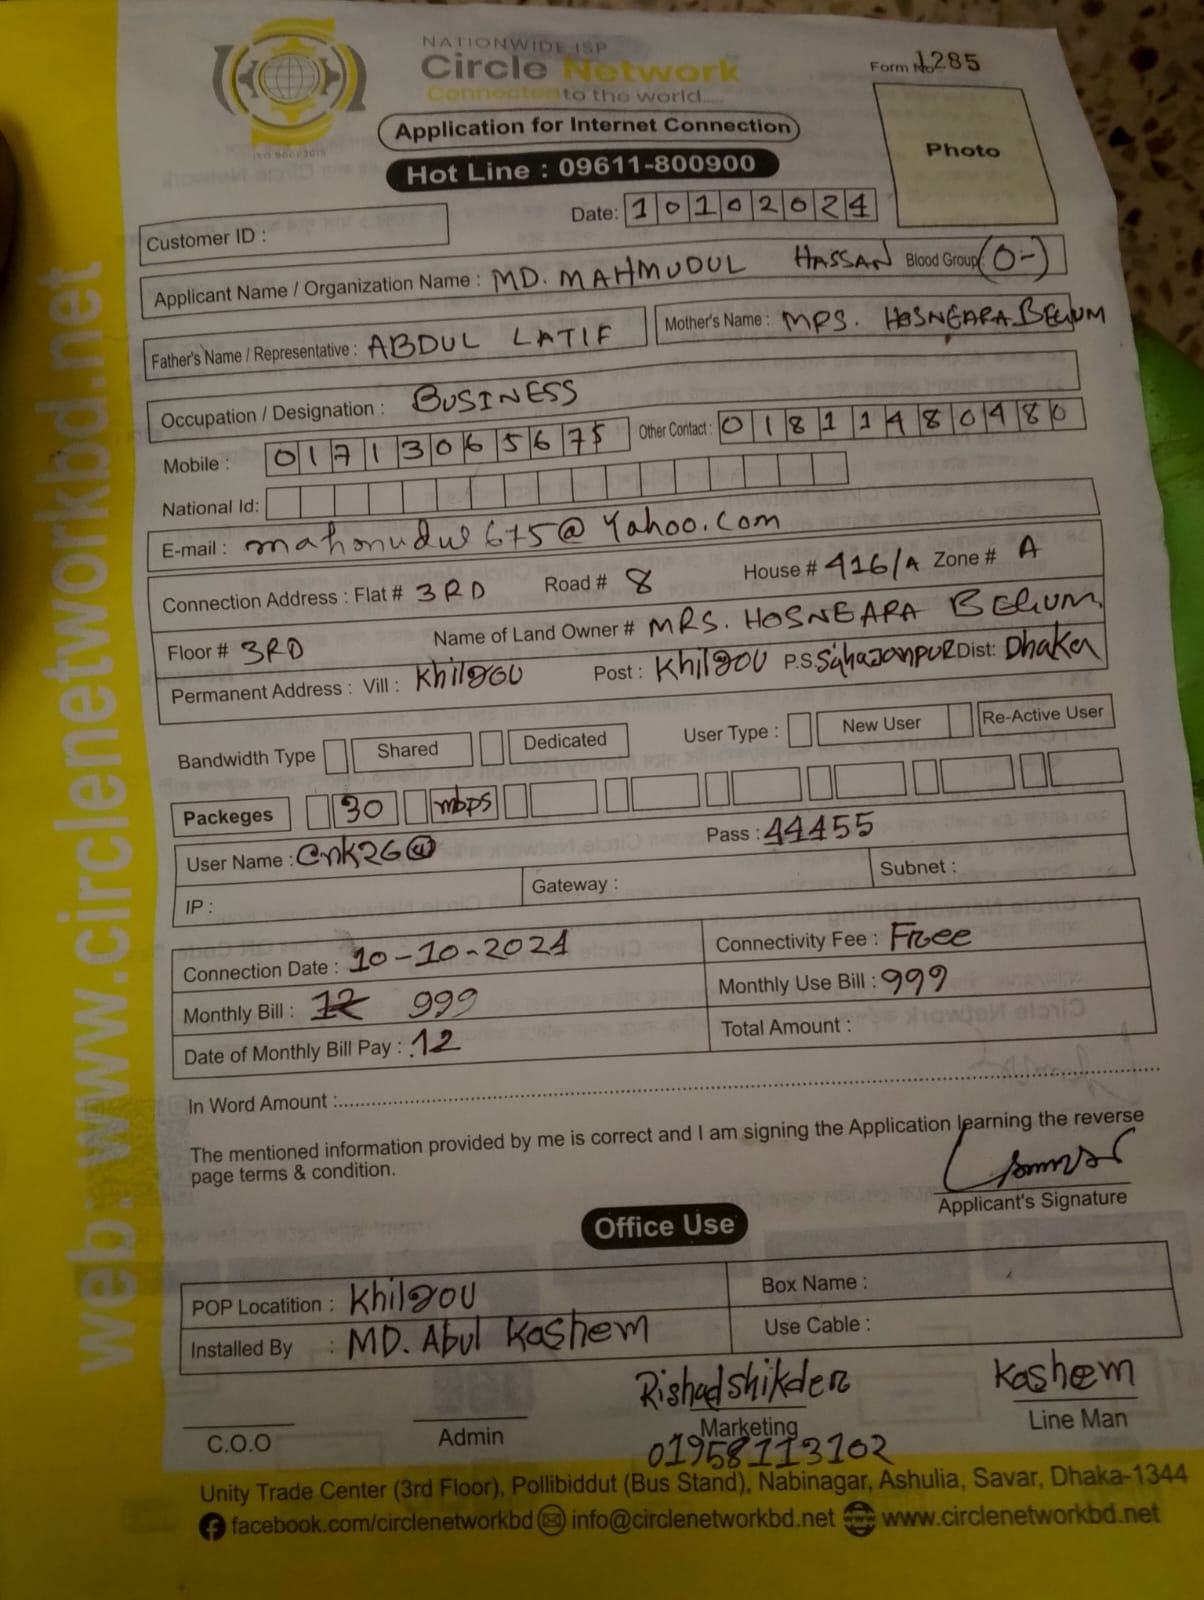 NATIONWIDE ISP
Circle Network
Connected to the world.....
ISO 9001:2015
Form No 1285
Application for Internet Connection
Hot Line : 09611-800900
Photo
Date: 10102024
Customer ID :
Applicant Name / Organization Name : MD. MAHMUDUL HASSAN Blood Group: (O-)
Father's Name / Representative : ABDUL LATIF Mother's Name : MRS. HOSNEARA BEGUM
Occupation / Designation : BUSINESS
Mobile : 01713065675 Other Contact : 01811480480
National Id:
E-mail : @ Yahoo.com
Connection Address : Flat # 3RD Road # 8 House # 416/A Zone # A
Floor # 3RD Name of Land Owner # MRS. HOSNEARA BEGUM
Permanent Address : Vill : Khilgou Post : Khilgou P.S. Sahajanpur Dist: Dhaka
Bandwidth Type Shared Dedicated User Type : New User Re-Active User
Packeges 30 mbps
User Name : Pass : 44455
IP : Gateway : Subnet :
Connection Date : 10-10-2024 Connectivity Fee : Free
Monthly Bill : 12 999 Monthly Use Bill : 999
Date of Monthly Bill Pay : 12 Total Amount :
In Word Amount :
The mentioned information provided by me is correct and I am signing the Application learning the reverse
page terms & condition.
Applicant's Signature
Office Use
POP Locatition : Khilgou Box Name :
Installed By : MD. Abul Kashem Use Cable :
Rishad Shikder Kashem
C.O.O Admin Marketing Line Man
01958113102
Unity Trade Center (3rd Floor), Pollibiddut (Bus Stand), Nabinagar, Ashulia, Savar, Dhaka-1344
facebook.com/circlenetworkbd info@circlenetworkbd.net www.circlenetworkbd.net
web: www.circlenetworkbd.net